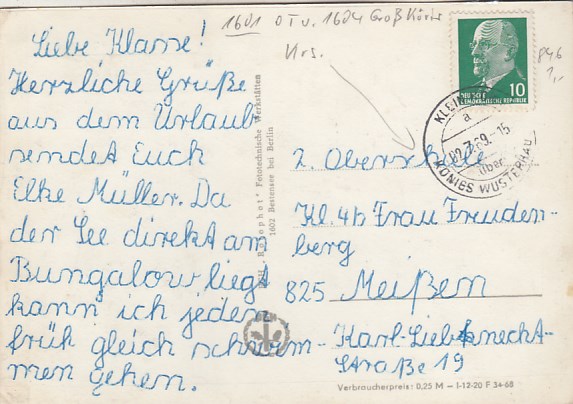 1601 OT v. 1604 Groß Köris
Krs.
846
1,-
Liebe Klasse!
Herzliche Grüße
aus dem Urlaub
sendet Euch
Elke Müller. Da
der See direkt am
Bungalow liegt
kann ich jeden
früh gleich schwim-
men gehen.
Fototechnische Werkstätten
1602 Bestensee bei Berlin
10
DEUTSCHE
DEMOKRATISCHE REPUBLIK
KLEIN
a
.7.69.-15
über
KÖNIGS WUSTERHAU
2. Oberschule
Kl. 4b Frau Freuden-
berg
825 Meißen
Karl-Liebknecht-
straße 19
Verbraucherpreis: 0,25 M – I-12-20 F 34-68